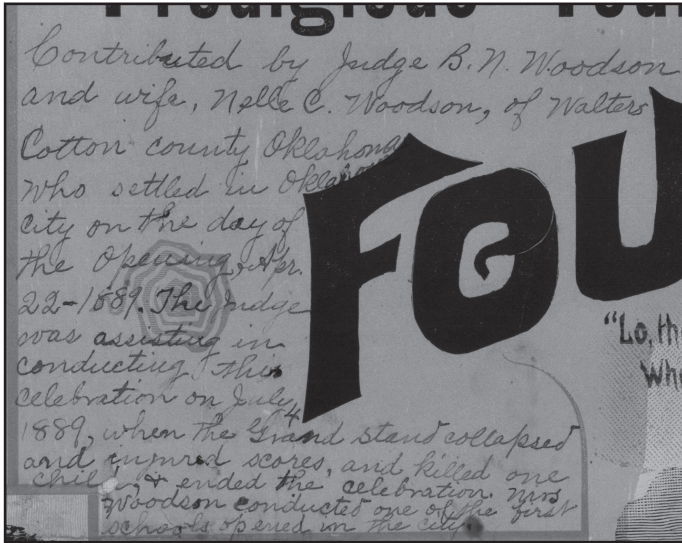 Prodigious Four
Contributed by Judge B. N. Woodson
and wife, Nelle C. Woodson, of Walters
Cotton county Oklahoma
who settled in Oklahoma
city on the day of
the Opening, Apr.
22-1889. The Judge
was assisting in
conducting this
celebration on July 4
1889, when the Grand stand collapsed
and injured scores, and killed one
child, & ended the celebration. Mrs
Woodson conducted one of the first
schools opened in the city.
FOU
"Lo, th
Wh